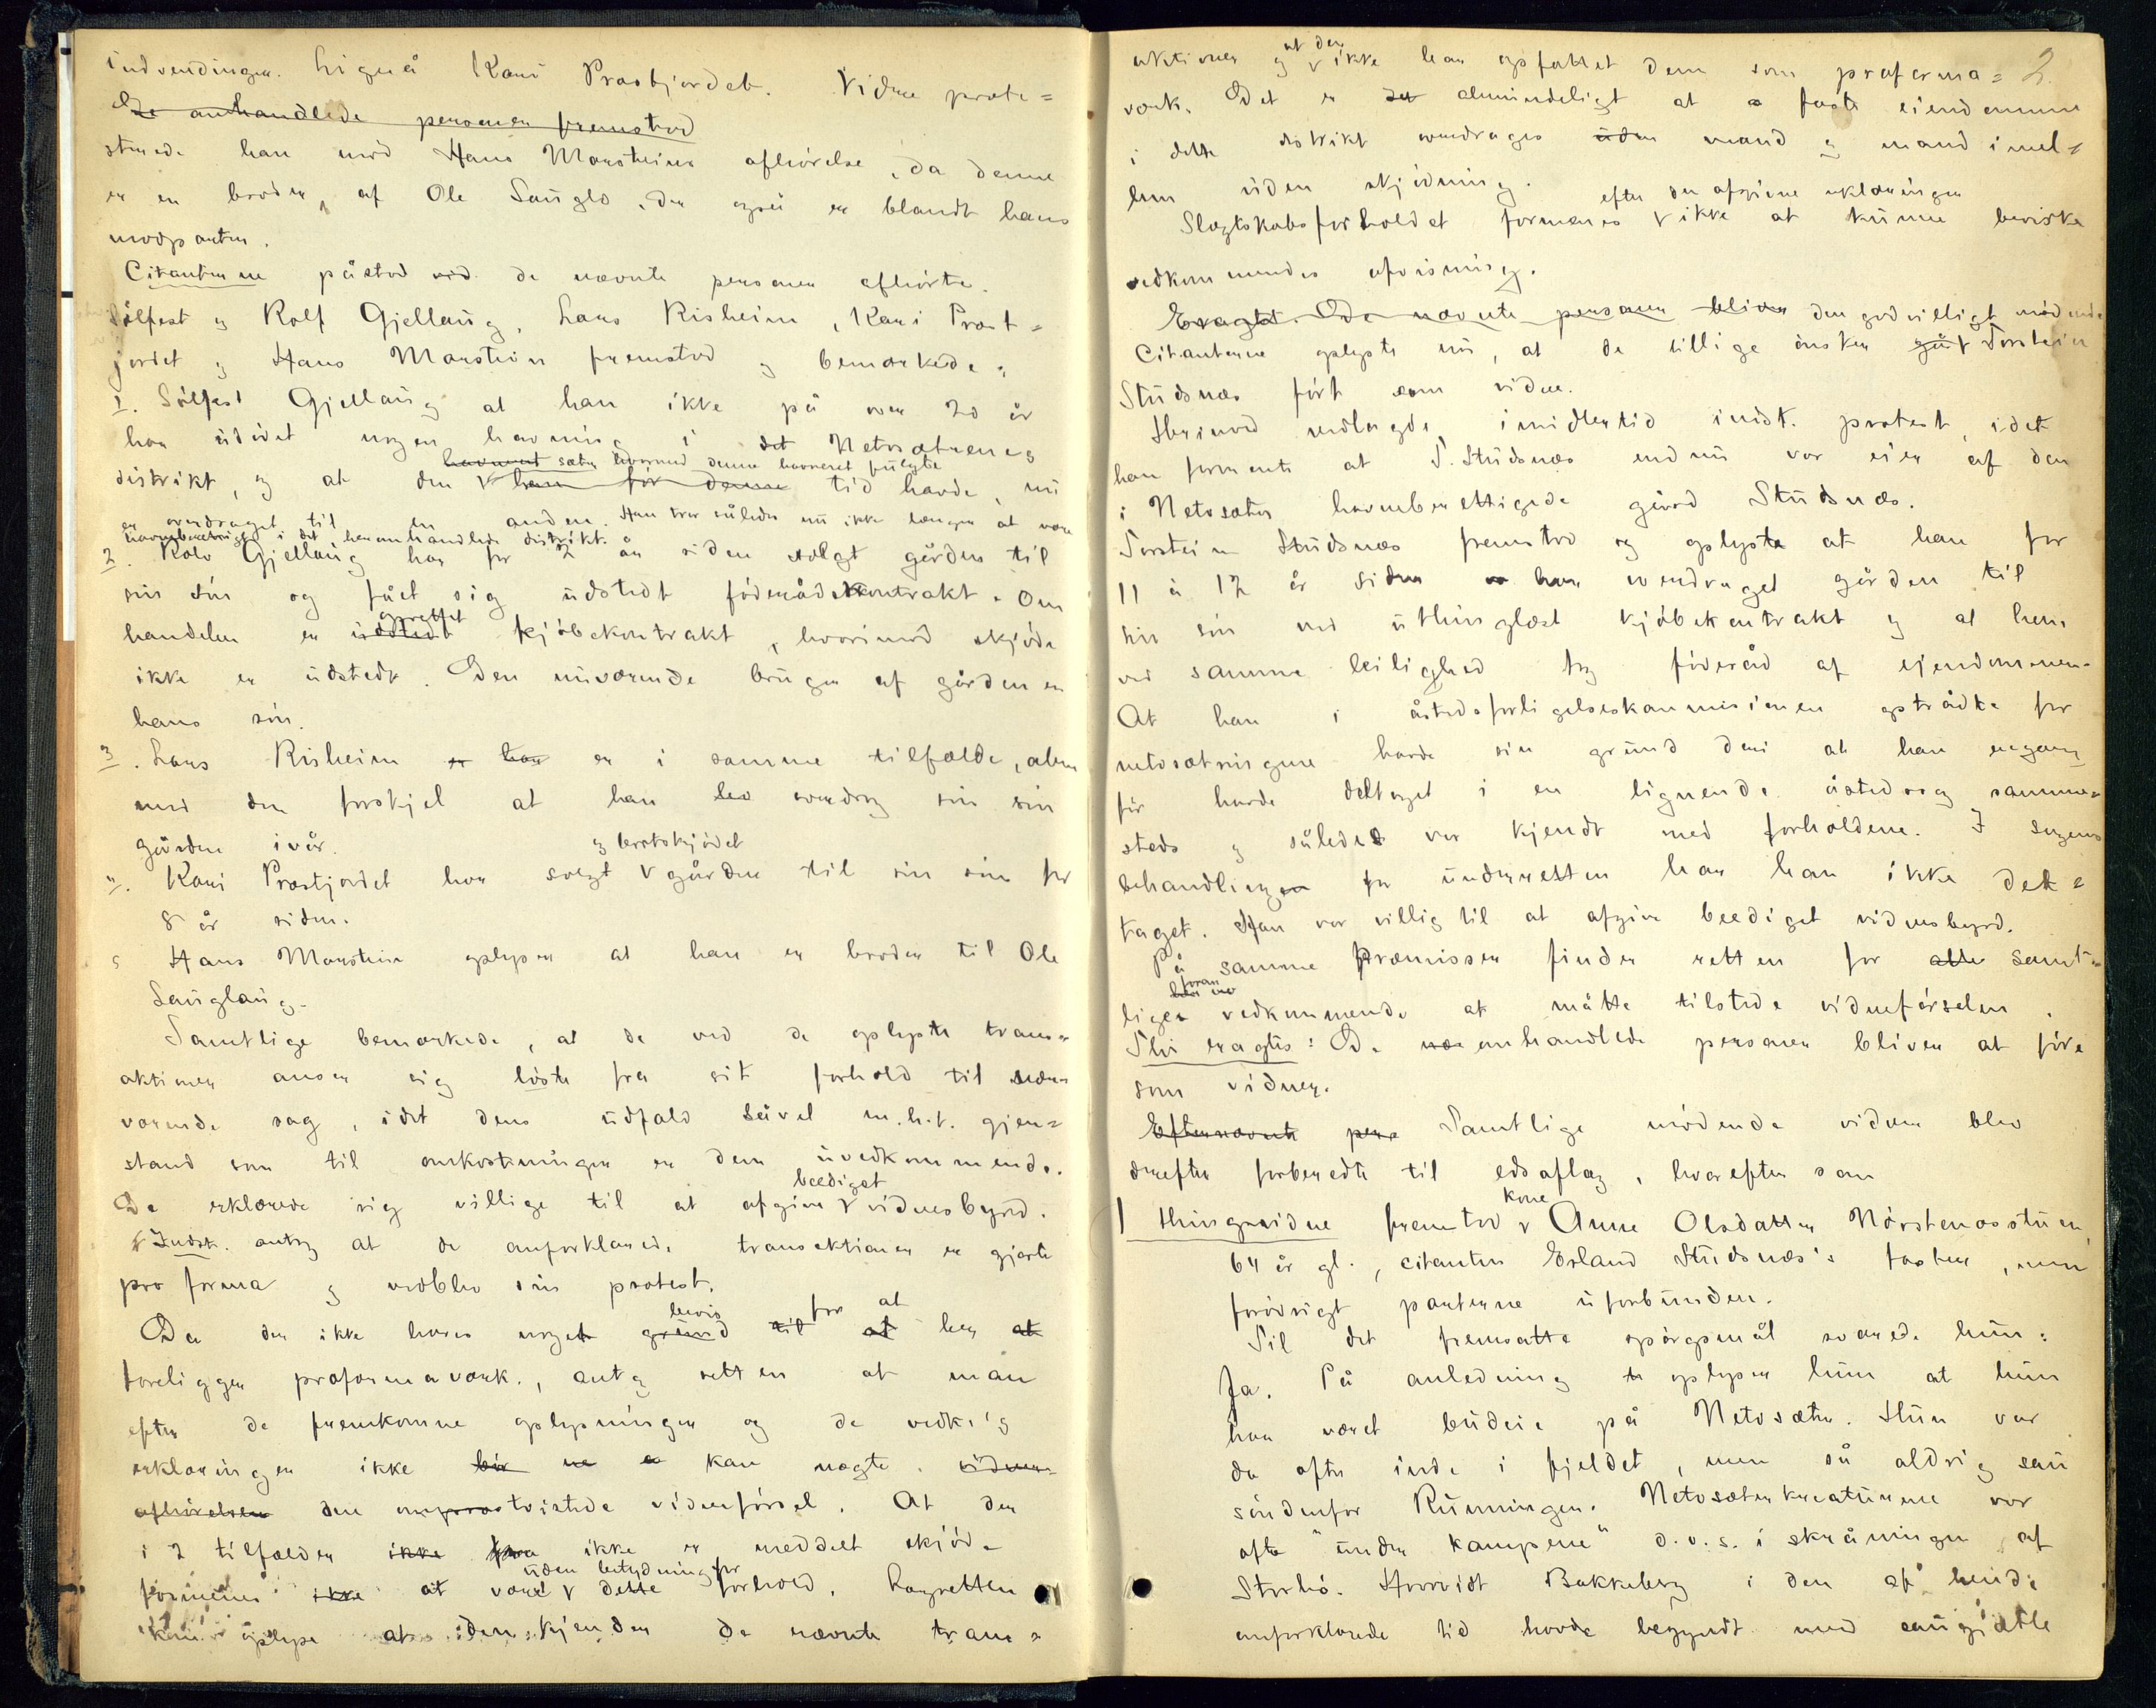 indvendinger. Ligeså Kari Præstjordet. Videre prote=
De omhandlede personer fremstod
sterede han mod Hans Marsteins afhörelse, da denne
er en broder af Ole Sauglo, der også er blandt hans
modparter.
Citanterne påstod de nævnte personer afhörte.
Sölfest og Rolf Gjellaug, Lars Risheim, Kari Præst=
jordet og Hans Marstein fremstod og bemærkede:
1. Sölfest Gjellaug at han ikke på over 20 år
har udövet nogen havning i det Netosætrenes
havneret sæter hvormed denne havneret fulgte
distrikt, og at den han för denne tid havde, nu
er overdraget til en anden. Han tror således nu ikke længer at være
havneberettiget i det heromhandlede distrikt.
2. Rolv Gjellaug har for 2 år siden solgt gården til
sin sön og fået sig udstedt föderådskontrakt. Om
oprettet
handelen er udstedt kjöbekontrakt, hvorimod skjöde
ikke er udstedt. Den nuværende bruger af gården er
hans sön.
3. Lars Risheim er har er i samme tilfælde, alene
med den forskjel at han blev overdrog sin sön
gården ivår.
og bortskjödet
4. Kari Præstjordet har solgt gården til sin sön for
8 år siden.
5 Hans Marstein oplyser at han er broder til Ole
Sauglaug.
Samtlige bemærkede, at de ved de oplyste trans=
aktioner anser sig löste fra sit forhold til nær=
værende sag, idet dens udfald såvel m.h.t. gjen=
stand som til omkostninger er dem uvedkommende.
beediget
De erklærede sig villige til at afgive vidnesbyrd.
Indst. antog at de anforklarede transaktioner er gjorte
pro forma og vedblev sin protest.
bevis for at
Da der ikke haves noget grund til at her at
foreligger proformaværk., antog retten at man
efter de fremkomne oplysninger og de vedk.'s
erklæringer ikke bör ne kan nægte. vidne=
afhörelsen den omtvistede vidneförsel. At der
i 2 tilfælder ikke ikke er meddelt skjöde
uden betydning for
formenes ikke at være dette forhold. Lagretten
kan oplyse at den kjender de nævnte trans=
2.
at der
aktioner og ikke har opfattet dem som proforma=
værk. Det er det almindeligt at faste eiendomme
i dette distrikt overdrages uden mand og mand imel=
lem uden skjödning.
efter de afgivne erklæringer
Slægtskabsforholdet formenes ikke at kunne bevirke
vedkommendes afvisning.
Eragtet. De nævnte personer bliver den godvilligt mödende
Citanterne oplyste nu, at de tillige önsker Torstein
Studsnæs fört som vidne.
Herimod nedlagde imidlertid indst. protest, idet
han formente at T. Studsnæs endnu var eier af den
i Netosæter havneberettigede gård Studsnæs.
Torstein Studsnæs fremstod og oplyste at han for
11 à 12 år siden har overdraget gården til
sin sön ved uthinglæst kjöbekontrakt og at han
ved samme leilighed tog föderåd af ejendommen.
At han i åstedsforligelseskommisionen optrådte for
netosætringerne havde sin grund deri at han engang
för havde deltaget i en lignende åstedssag samme=
steds og således var kjendt med forholdene. I sagens
behandling for underretten har han ikke del=
taget. Han var villig til at afgive beediget vidnesbyrd.
På samme Præmisser finder retten for alle samt=
foran
liges vedkommende at måtte tilstede vidneförselen.
Thi eragtes: De omhandlede personer bliver at före
som vidner.
Efternævnte pers Samtlige mödende vidner blev
derefter forberedte til edsaflæg, hvorefter som
kone
1 thingsvidne fremstod Anne Olsdatter Nörstenæsstuen,
64 år gl., citanten Erland Studsnæs's faster, men
forövrigt parterne uforbunden.
Til det fremsatte spörgsmål svarede hun:
Ja. På anledning oplyser hun at hun
har været budeie på Netosæter. Hun var
da ofte inde i fjeldet, men så aldrig sau
söndenfor Runningen. Netosæterkreaturene var
ofte "under kampene" d.v.s. i skråningen af
Storhö. Hvorvidt Bakkeberg i den af hende
omforklarede tid havde begyndt med saugjætte